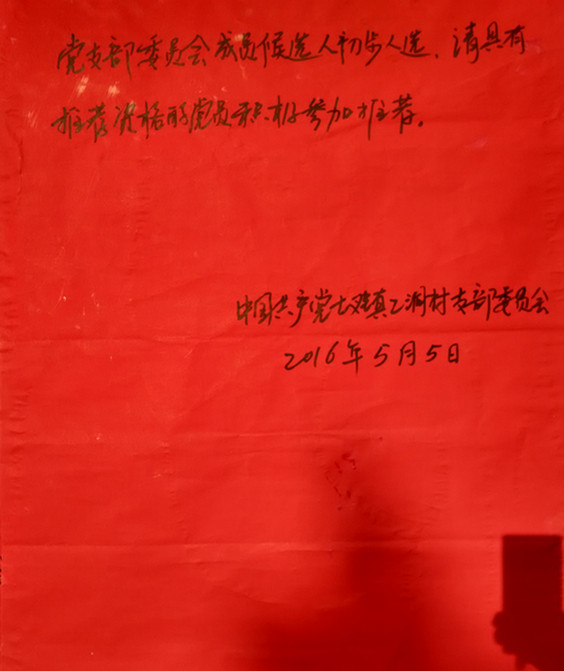 党支部委员会成员候选人初步人选，请具有
推荐资格的党员积极参加推荐。
中国共产党七甲镇乙洞村支部委员会
2016年5月5日